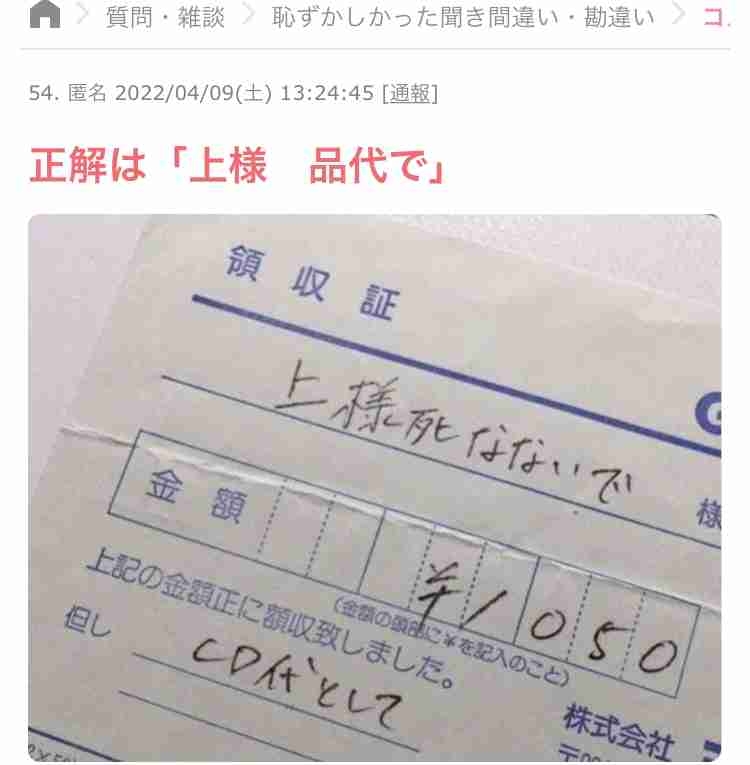 質問・雑談 > 恥ずかしかった聞き間違い・勘違い > コ
54. 匿名 2022/04/09(土) 13:24:45 [通報]
正解は「上様　品代で」
領収証
上様死なないで 様
金額 ¥1050
(金額の頭部に¥を記入のこと)
上記の金額正に領収致しました。
但し CD代として
株式会社